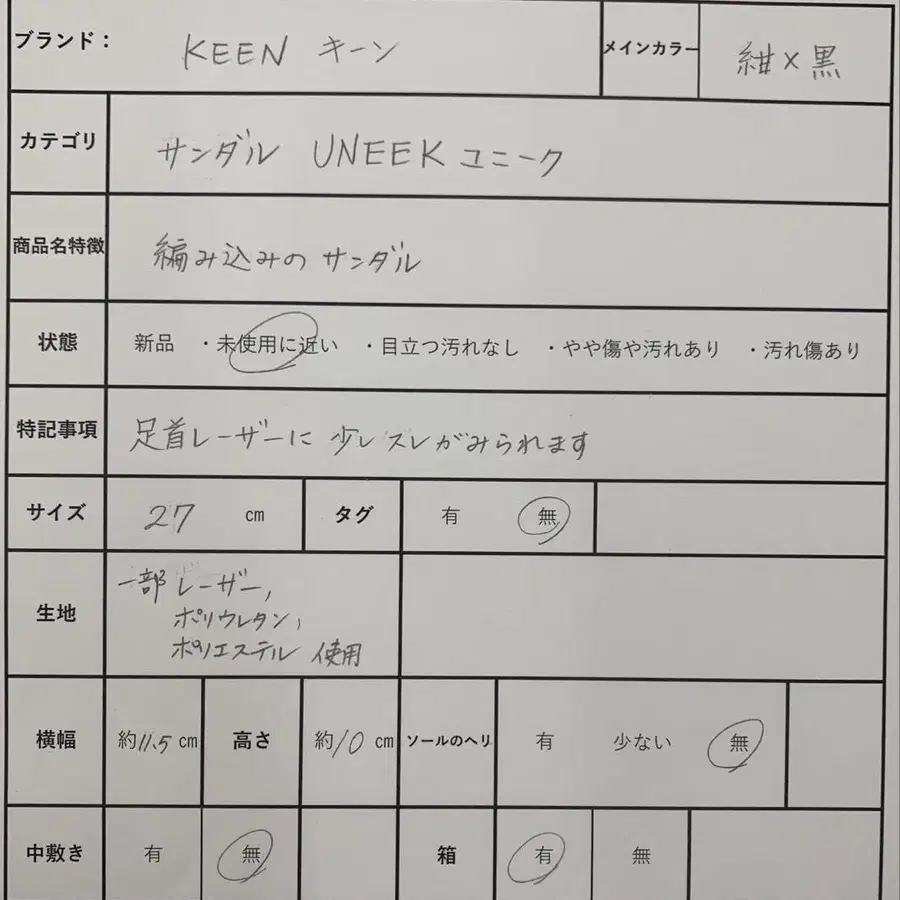 ブランド： KEEN キーン メインカラー 紺×黒
カテゴリ サンダル UNEEK ユニーク
商品名特徴 編み込みのサンダル
状態 新品 ・未使用に近い ・目立つ汚れなし ・やや傷や汚れあり ・汚れ傷あり
特記事項 足首レーザーに少しスレがみられます
サイズ 27 cm タグ 有 無
生地 一部レーザー,
ポリウレタン,
ポリエステル 使用
横幅 約11.5 cm 高さ 約10 cm ソールのヘリ 有 少ない 無
中敷き 有 無 箱 有 無